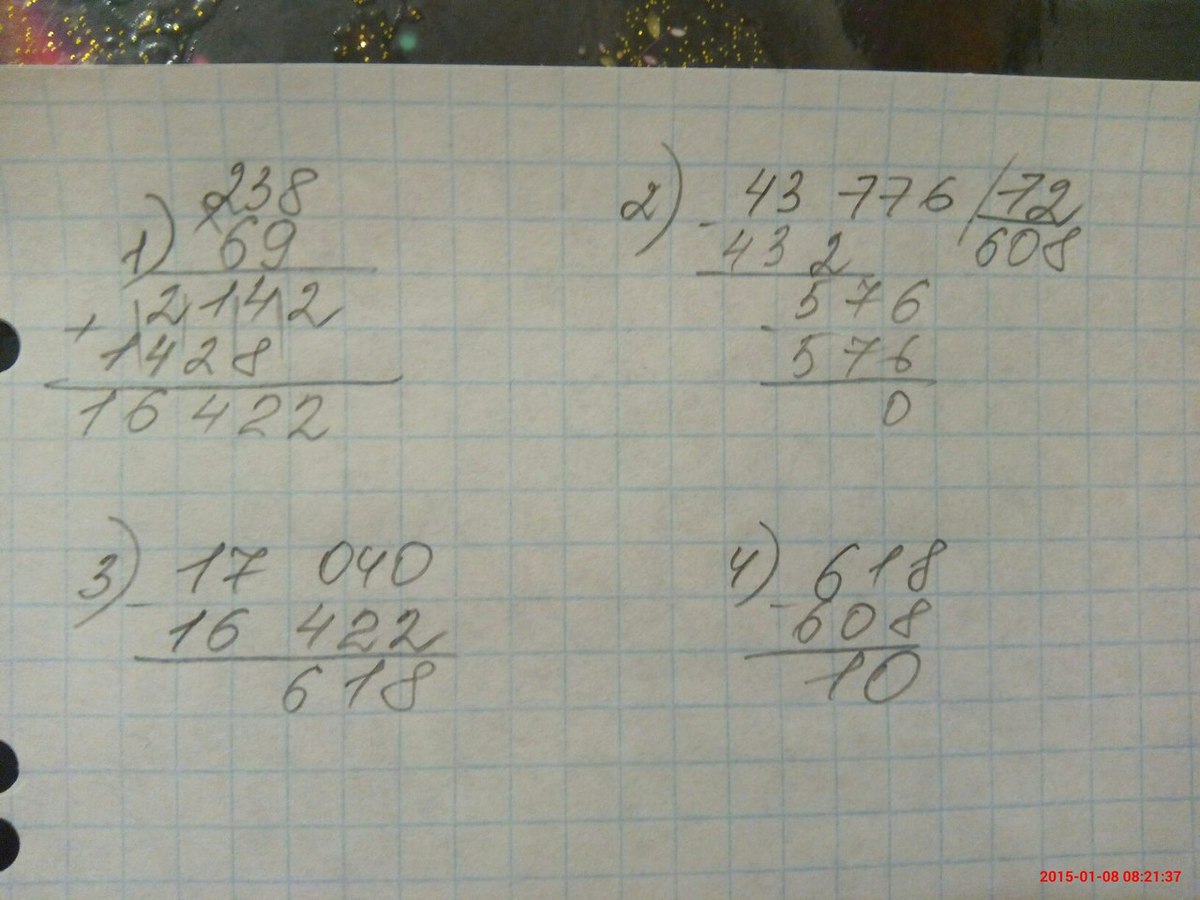 1) ×238
69
+ 2142
1428
16 422
2) - 43 776 | 72
43 2 608
- 576
576
0
3) - 17 040
16 422
618
4) - 618
608
10
2015-01-08 08:21:37